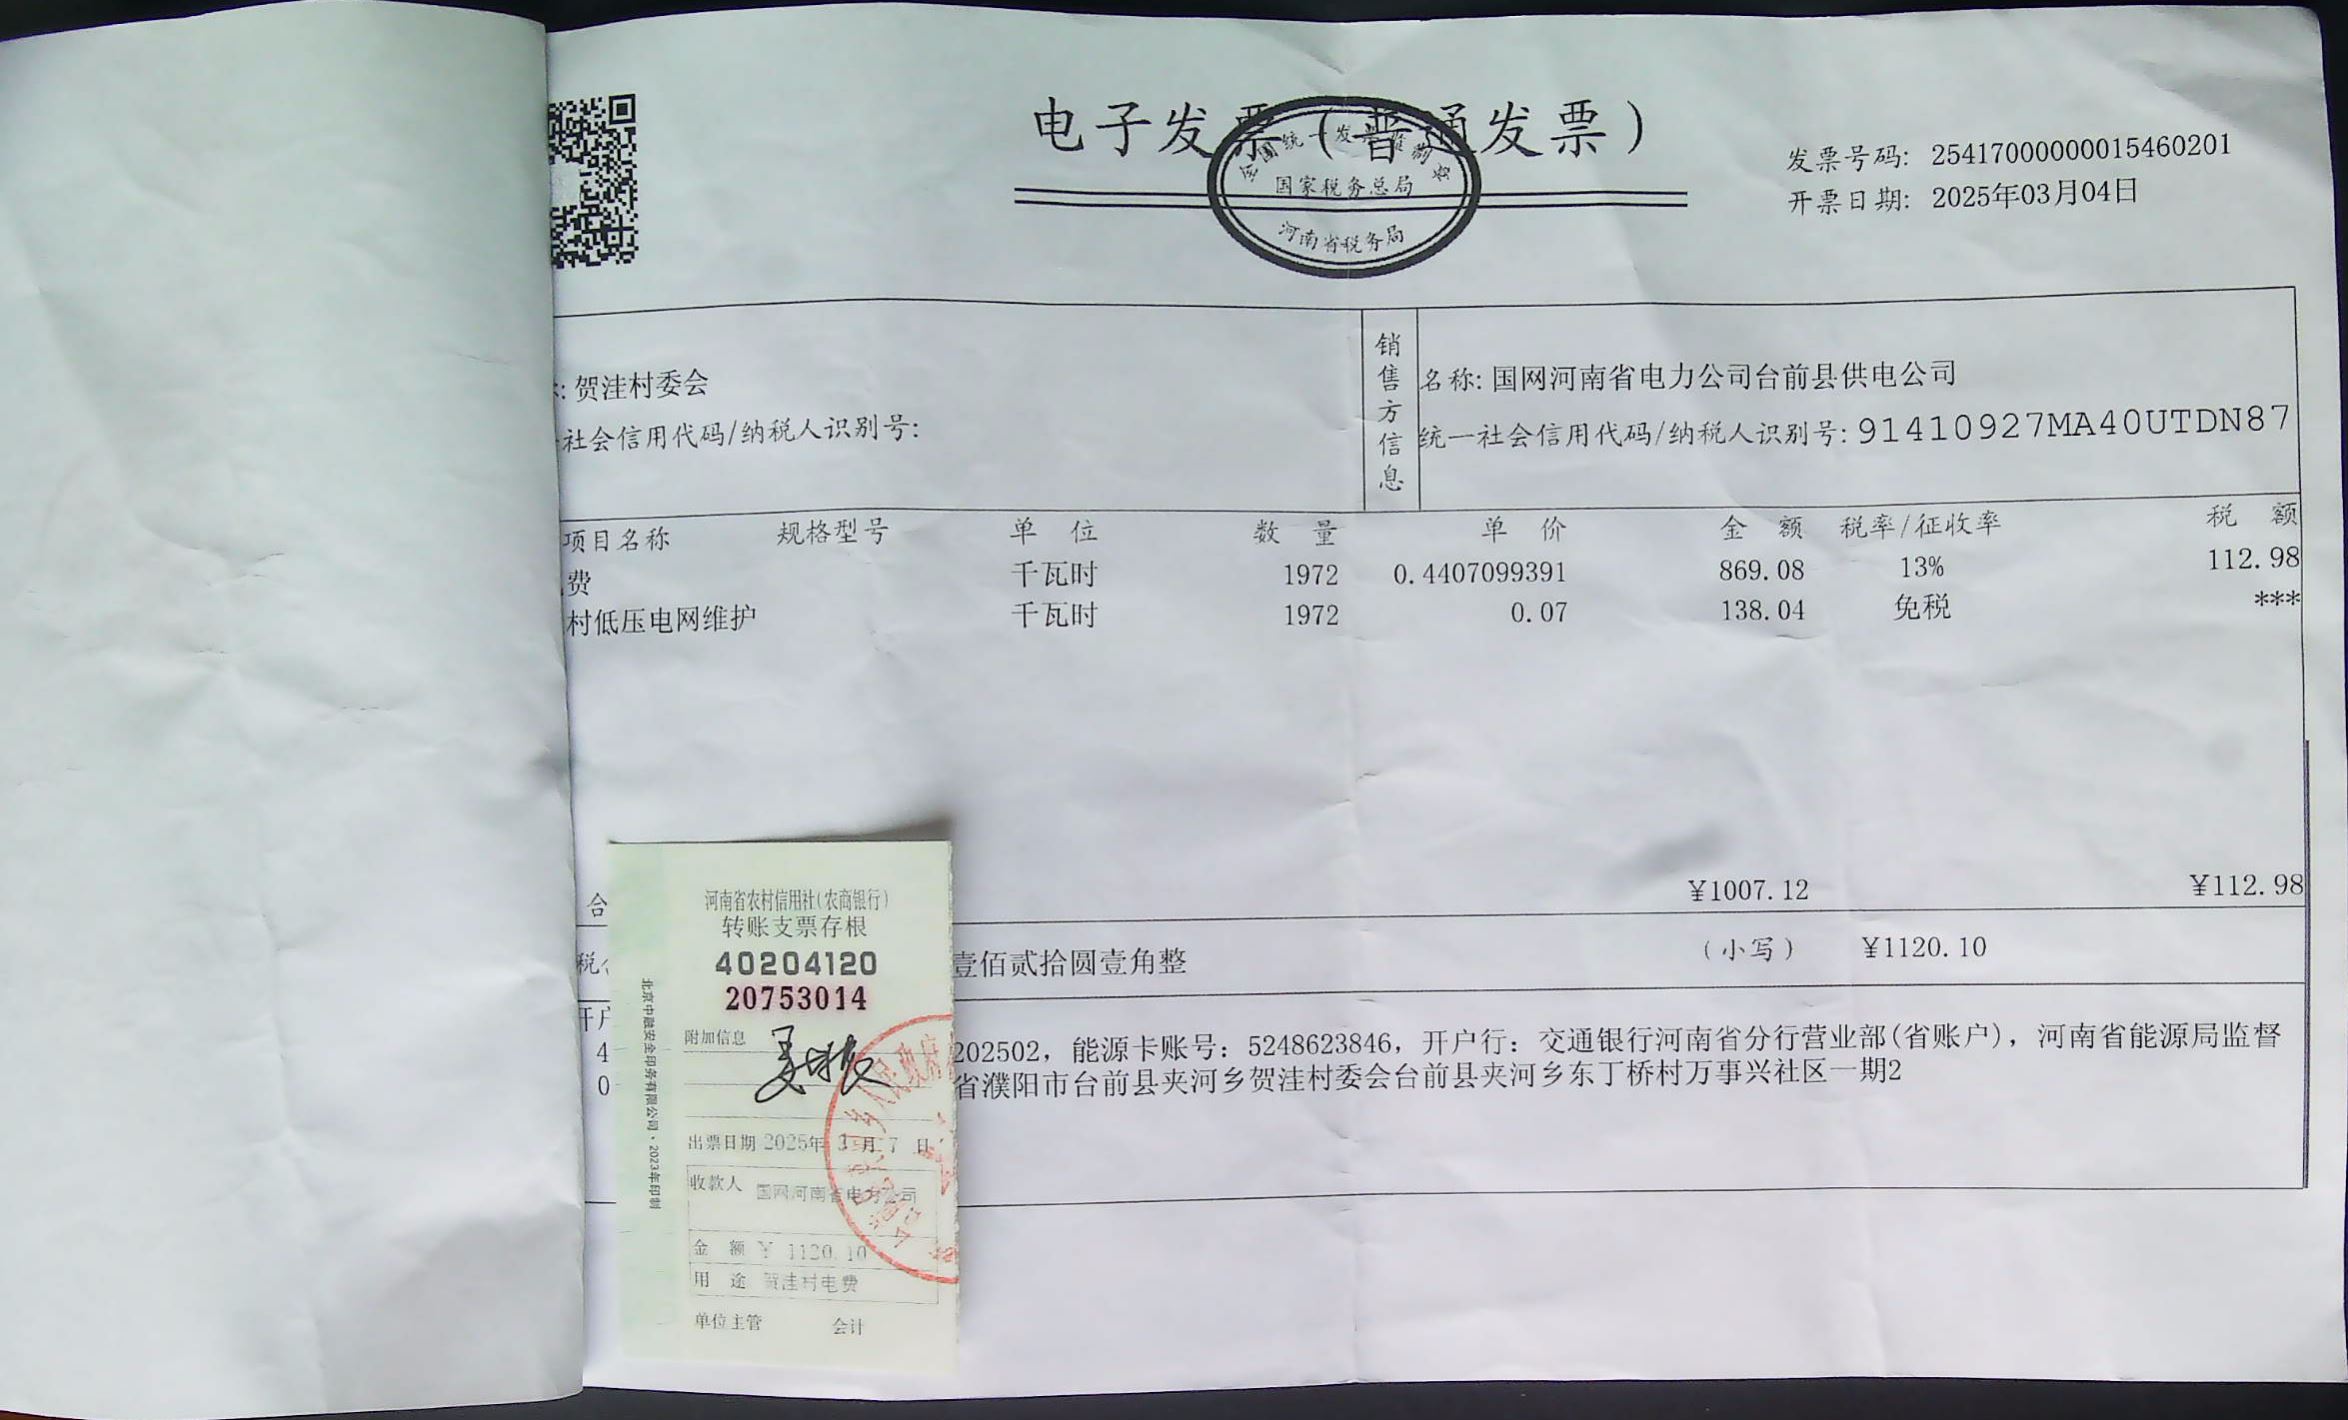 电子发票（普通发票）
全国统一发票监制章
国家税务总局
河南省税务局
发票号码: 25417000000015460201
开票日期: 2025年03月04日
: 贺洼村委会
社会信用代码/纳税人识别号:
销售方信息
名称: 国网河南省电力公司台前县供电公司
统一社会信用代码/纳税人识别号: 91410927MA40UTDN87
项目名称 规格型号 单 位 数 量 单 价 金 额 税率/征收率 税 额
费 千瓦时 1972 0.4407099391 869.08 13% 112.98
村低压电网维护 千瓦时 1972 0.07 138.04 免税 ***
合 ¥1007.12 ¥112.98
税 壹佰贰拾圆壹角整 (小写) ¥1120.10
开户
4 202502, 能源卡账号: 5248623846, 开户行: 交通银行河南省分行营业部(省账户), 河南省能源局监督
0 省濮阳市台前县夹河乡贺洼村委会台前县夹河乡东丁桥村万事兴社区一期2
河南省农村信用社(农商银行)
转账支票存根
40204120
20753014
附加信息
出票日期 2025年 3 月 7 日
收款人 国网河南省电力公司
金 额 ¥ 1120.10
用 途 贺洼村电费
单位主管 会计
北京中融安全印务有限公司·2023年印制
乡人民政府